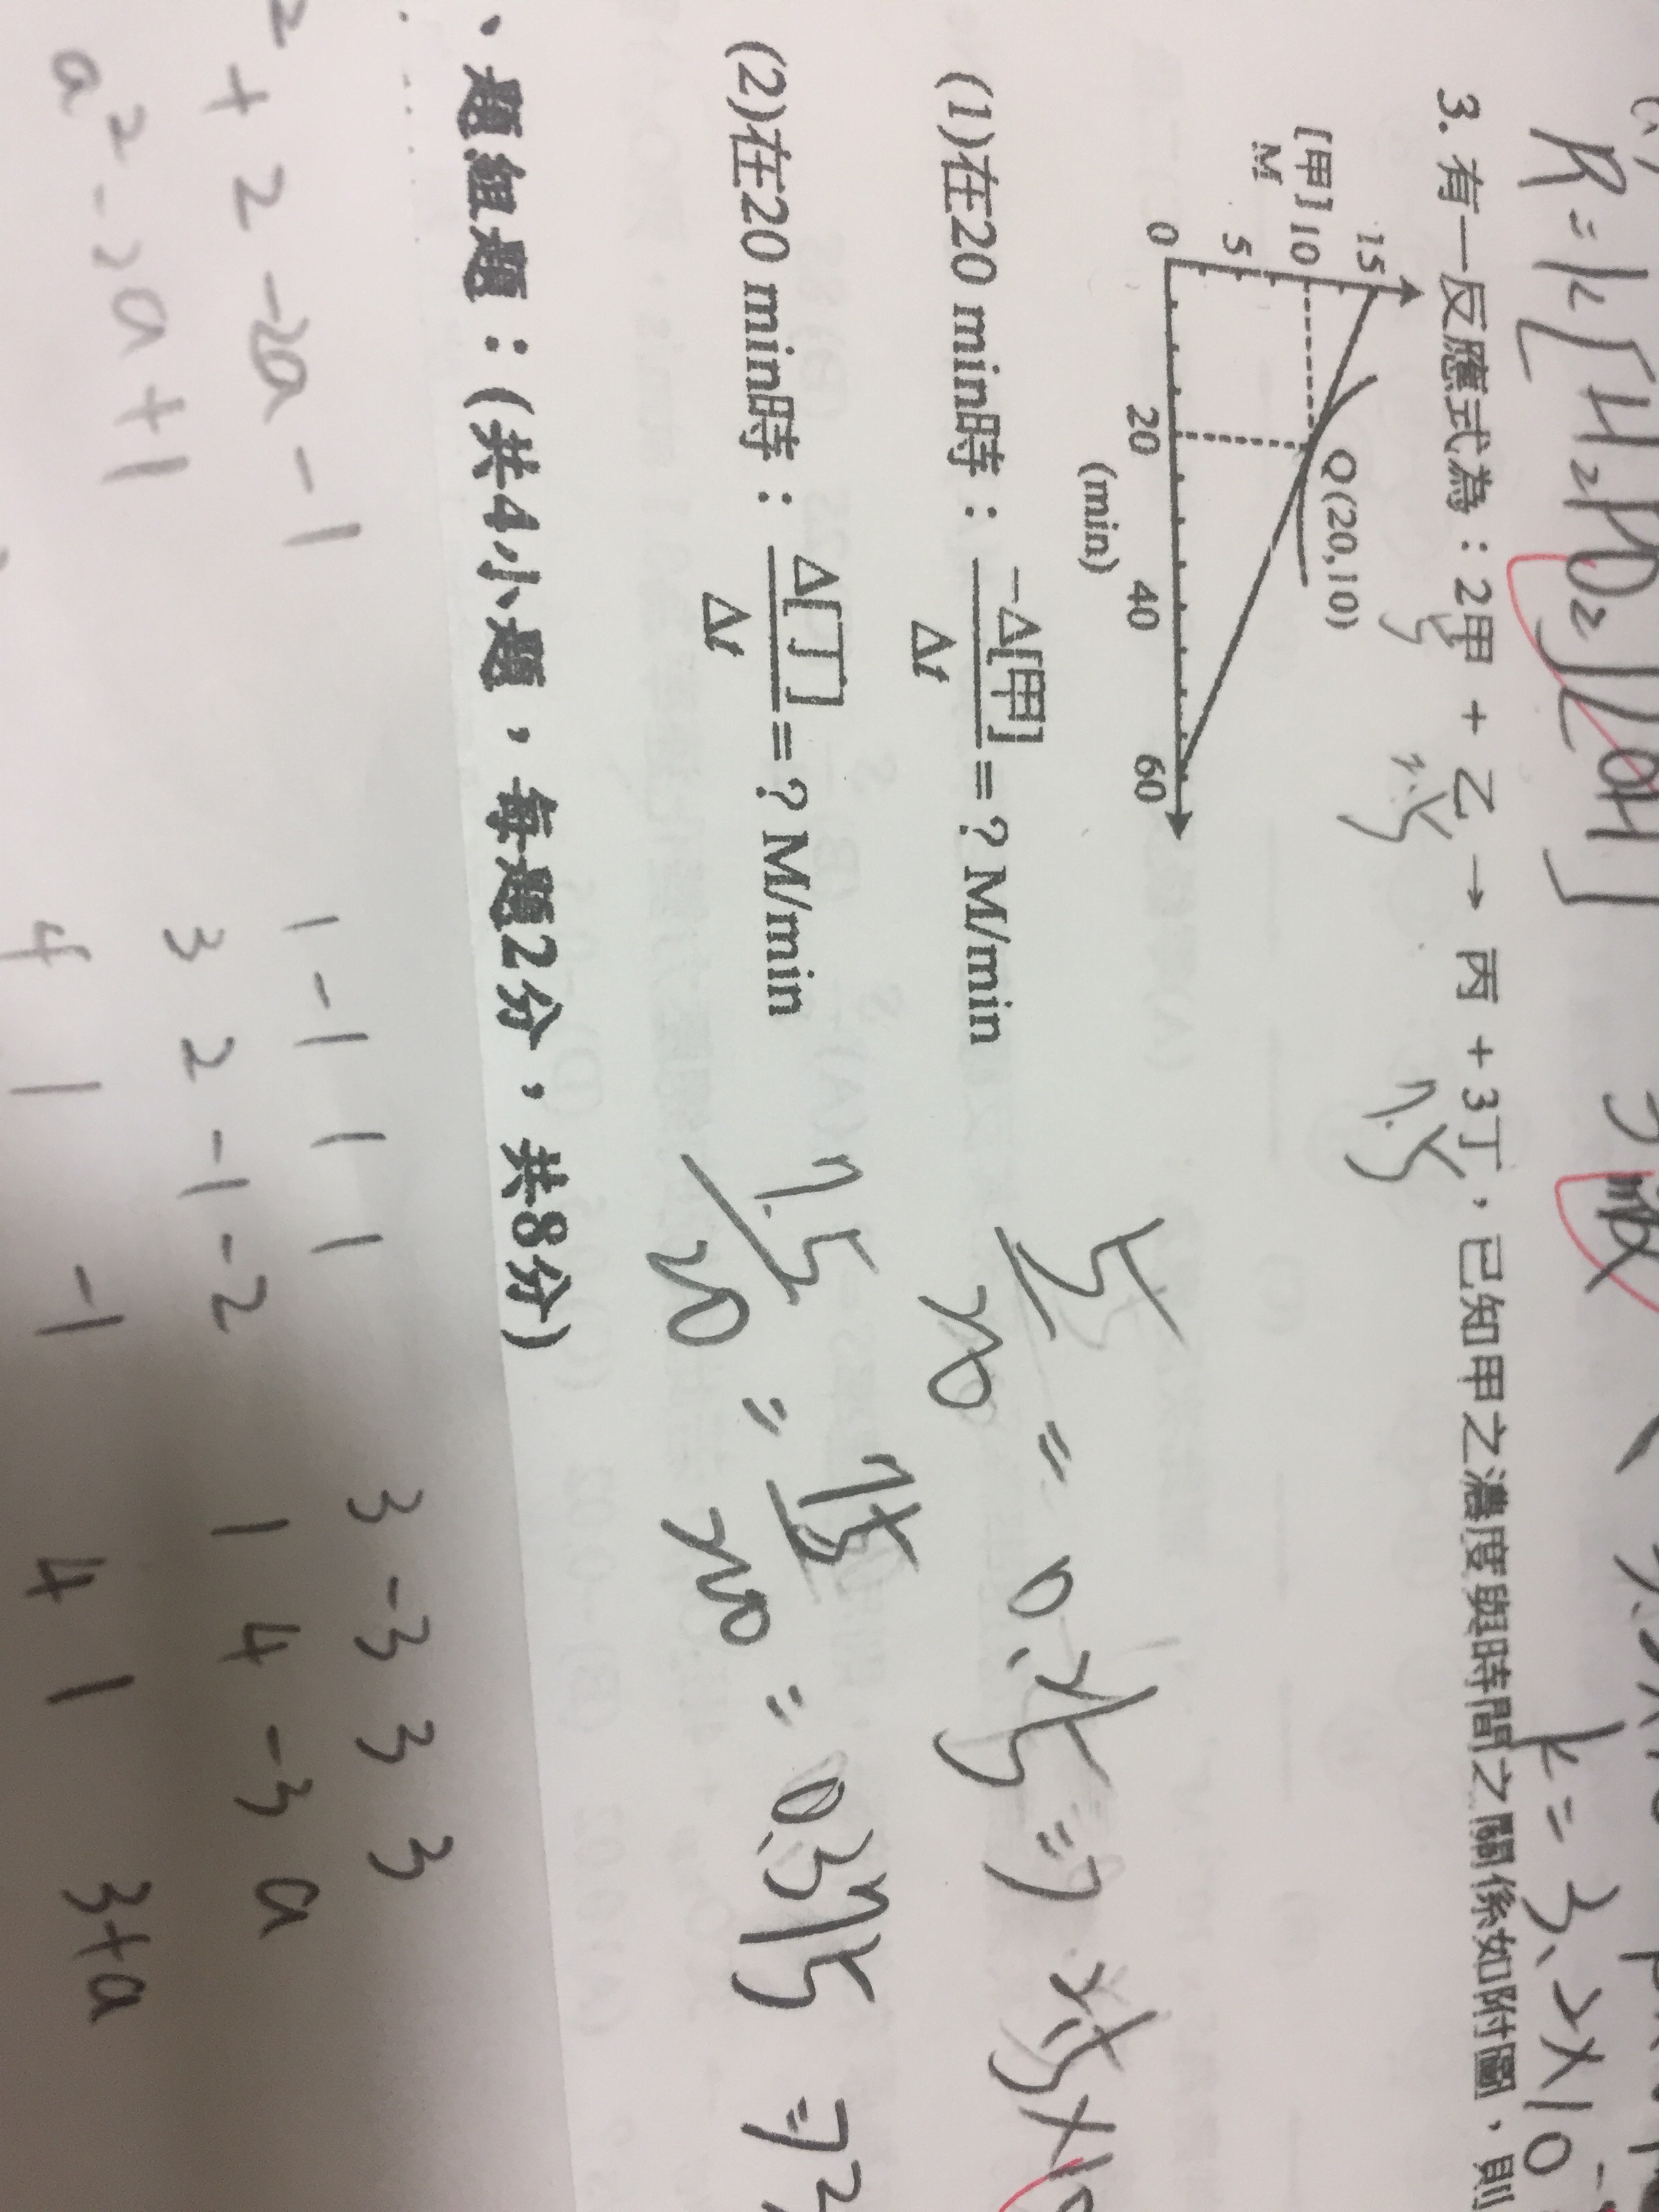 R = k[H₂PO₂⁻][OH⁻]
k = 3.2×10⁻
3. 有一反應式為：2甲 + 乙 → 丙 + 3丁，已知甲之濃度與時間之關係如附圖，則
5 2.5 7.5
[甲]
M
15
10
5
0
20
40
60
(min)
Q(20,10)
(1)在20 min時：-Δ[甲]/Δt = ? M/min
5/20 = 0.25 ⇒ 2.5×10
(2)在20 min時：Δ[丁]/Δt = ? M/min
7.5/20 = 75/200 = 0.375 ⇒
、題組題：(共4小題，每題2分，共8分)
2 + 2 - 2a - 1
a² - 2a + 1
1 -1 1 1
3 2 -1 -2
4 1 -1
3 -3 3 3
1 4 -3 a
4 1 3+a